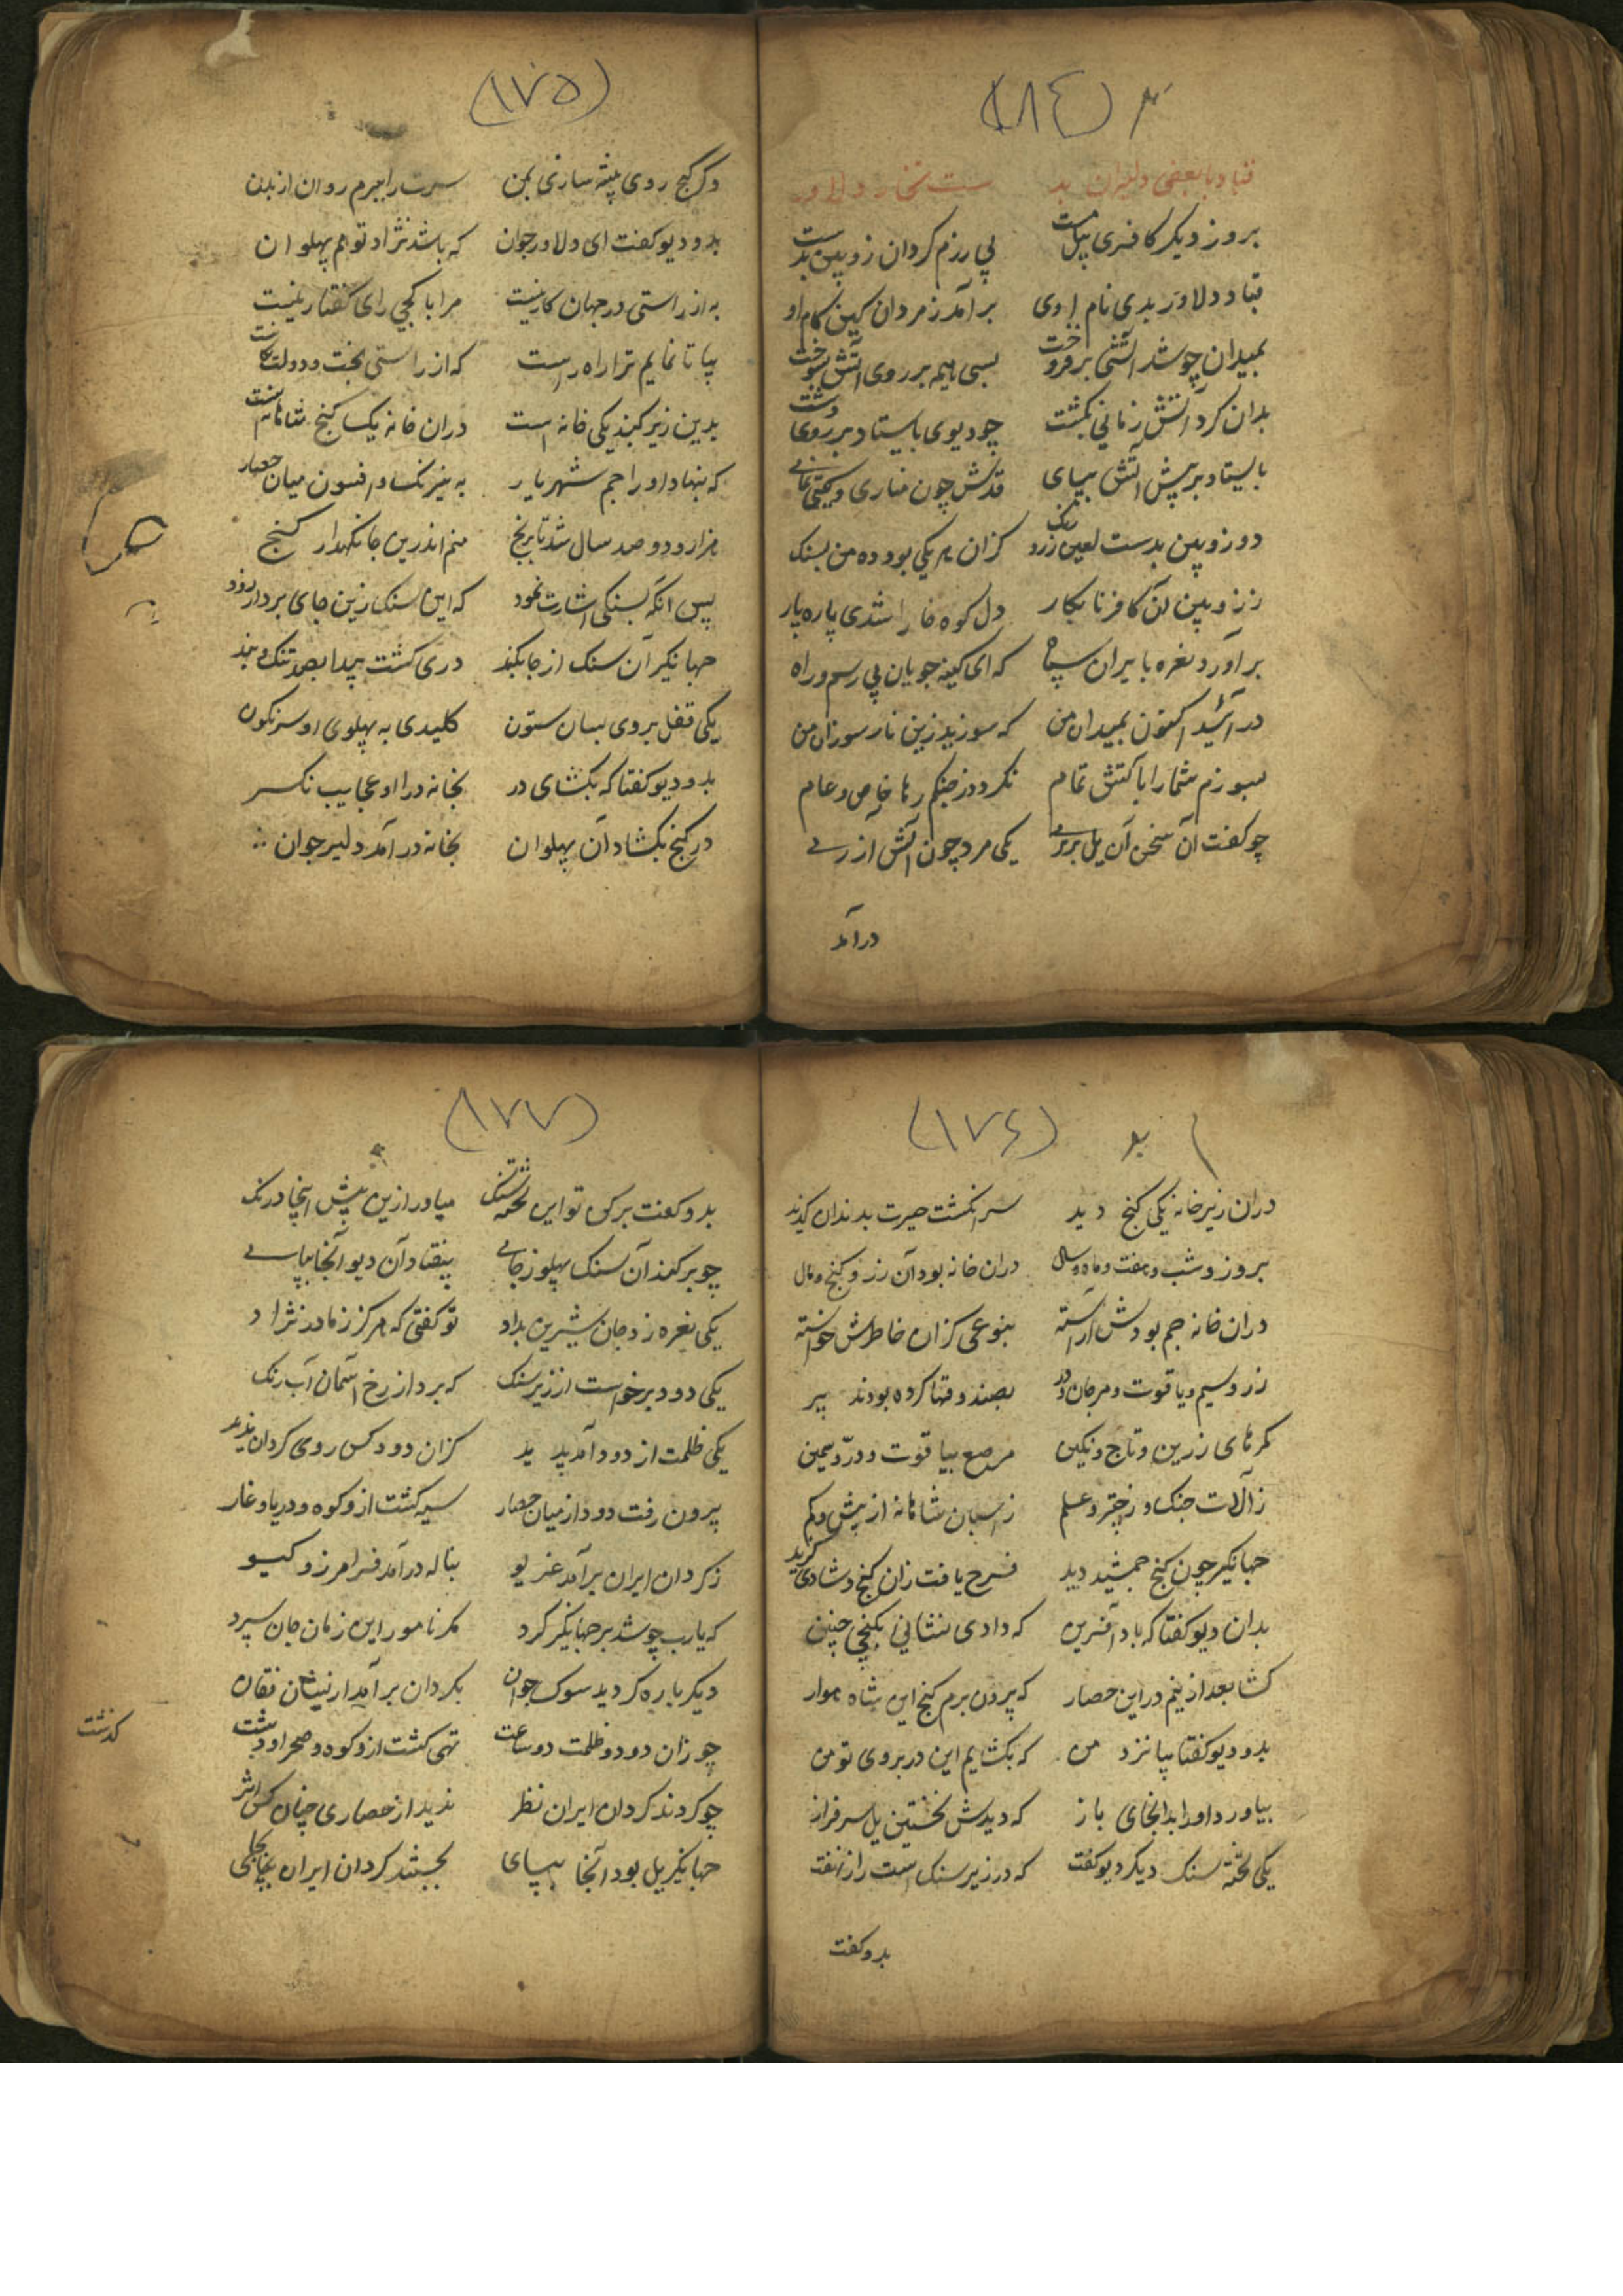 (۱۸٤)
قباد با بعضی دلیران بد ست تخار دلاور
بروز دیکر کافری پیل مست پی رزم کردان زوپین بدست
قباد دلاور بدی نام اوی برآمد ز مردان کین کام او
بمیدان چو شد آتشی برفروخت بسی هیمه بر روی آتش بسوخت
بدان کرد آتش زمانی بکشت چو دیوی باستاد بر روی دشت
باستاد بر پیش آتش بپای قدش چون مناری و کیتی نمای
دو زوپین بدست لعین زرد رنک کزان هر یکی بود ده من بسنک
ز زوپین آن کافر نابکار دل کوه خارا شدی پاره پار
برآورد نعره بایران سپاه که ای کینه جویان بی رسم و راه
در آئید اکنون بمیدان من که سوزید زین نار سوزان من
بسوزم شما را باتش تمام نکردد ز جنکم رها خاص و عام
چو کفت آن سخن آن یل بربری یکی مرد چون آتش آزری
درآمد
(۱۷۵)
وکر کج روی پیشه سازی بمن سرت را ببرم روان از بدن
بدو دیو کفت ای دلاور جوان که باشد نژاد تو هم پهلوان
به از راستی در جهان کار نیست مرا با کجی رای کفتار نیست
بیا تا نمایم ترا راه راست که از راستی بخت و دولت بخاست
بدین زیر کنبد یکی خانه است دران خانه یک کنج شاهانه است
که بنهاد او را جم شهریار به نیرنک و افسون میان حصار
هزار و دو صد سال شد تا برنج منم اندرین جا نکهدار کنج
پس آنکه بسنکی اشارت نمود که این سنک زین جای بردار زود
جهانکیر آن سنک از جا بکند دری کشت پیدا بصد تنک و بند
یکی قفل بروی بسان ستون کلیدی به پهلوی او سرنکون
بدو دیو کفتا که بکشای در بخانه درا و عجایب نکر
در کنج بکشاد آن پهلوان بخانه درآمد دلیر جوان
(۱۷٤)
دران زیر خانه یکی کنج دید سر انکشت حیرت بدندان کزید
بروز و شب و هفت و ماه و سال دران خانه بود آن زر و کنج و مال
دران خانه جم بودش آراسته بنوعی کزان خاطرش خواسته
زر و سیم و یاقوت و مرجان و در بصندوقها کرده بودند پر
کمرهای زرین و تاج و نکین مرصع بیاقوت و در و ثمین
ز آلات جنک و ز چتر و علم ز اسبان شاهانه از بیش و کم
جهانکیر چون کنج جمشید دید فرح یافت زان کنج و شادی کزید
بدان دیو کفتا که باد آفرین که دادی نشانی بکنجی چنین
کشا بعد ازینم در این حصار که بیرون برم کنج این شاه‌وار
بدو دیو کفتا بیا نزد من که بکشایم این در بروی تو من
بیاورد او را بدانجای باز که دیدش نخستین یل سرفراز
یکی تخته سنک دیکر دیو کفت که در زیر سنک است راز نهفت
بدو کفت
(۱۷۷)
بدو کفت برکن تو این تخته سنک میاور ازین بیش اینجا درنک
چو برکند آن سنک پهلو ز جای بیفتاد آن دیو آنجا بپای
یکی نعره زد جان شیرین بداد تو کفتی که هرکز ز مادر نزاد
یکی دود برخواست از زیر سنک که برد از رخ آسمان آب رنک
یکی ظلمت از دود آمد پدید کزان دود کس روی کردان ندید
برون رفت دود از میان حصار سیه کشت ازو کوه و دریا و غار
ز کردان ایران برآمد غریو بناله درآمد فرامرز و کیو
که یارب چو شد بر جهانکیر کرد مکر نامور این زمان جان سپرد
دیکرباره کردید سوک جوان بکردان برآمد ازیشان فغان
چو زان دود و ظلمت دو ساعت کذشت تهی کشت ازو کوه و صحرا و دشت
چو کردند کردان ایران نظر ندید از حصاری چنان کس اثر
جهانکیر یل بود آنجا بپای بجستند کردان ایران ز جای